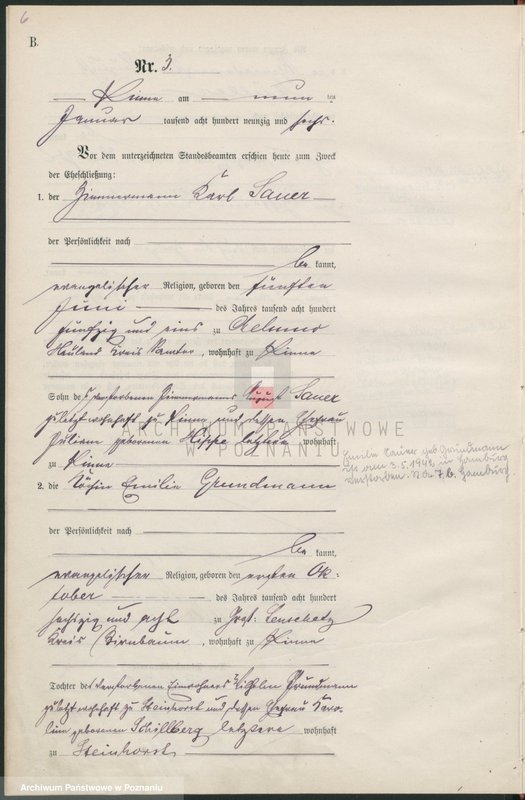 6
B.
Nr. 3.
Pinne am neun ten
Januar tausend acht hundert neunzig und sechs.
Vor dem unterzeichneten Standesbeamten erschien heute zum Zweck
der Eheschließung:
1. der Zimmermann Karl Sauer
der Persönlichkeit nach
be kannt,
evangelischer Religion, geboren den fünften
Juni des Jahres tausend acht hundert
fünfzig und eins zu
Hauland Kreis Samter, wohnhaft zu Pinne
Sohn des verstorbenen Zimmermanns August Sauer
zuletzt wohnhaft zu Pinne und dessen Ehefrau
Juliane geborenen Hippe letztere wohnhaft
zu Pinne
2. die Köchin Emilie Grundmann
der Persönlichkeit nach
be kannt,
evangelischer Religion, geboren den ersten Ok=
tober des Jahres tausend acht hundert
sechszig und acht zu
Kreis Birnbaum, wohnhaft zu Pinne
Tochter des verstorbenen Einwohners Wilhelm Grundmann
zuletzt wohnhaft zu Steinhorst und dessen Ehefrau Karo-
line geborenen Schillberg letztere wohnhaft
zu Steinhorst
Emilie Sauer geb. Grundmann
ist am 2.5.1942 in Hamburg
verstorben. Hamburg
ARCHIWUM PAŃSTWOWE
W POZNANIU
Archiwum Państwowe w Poznaniu